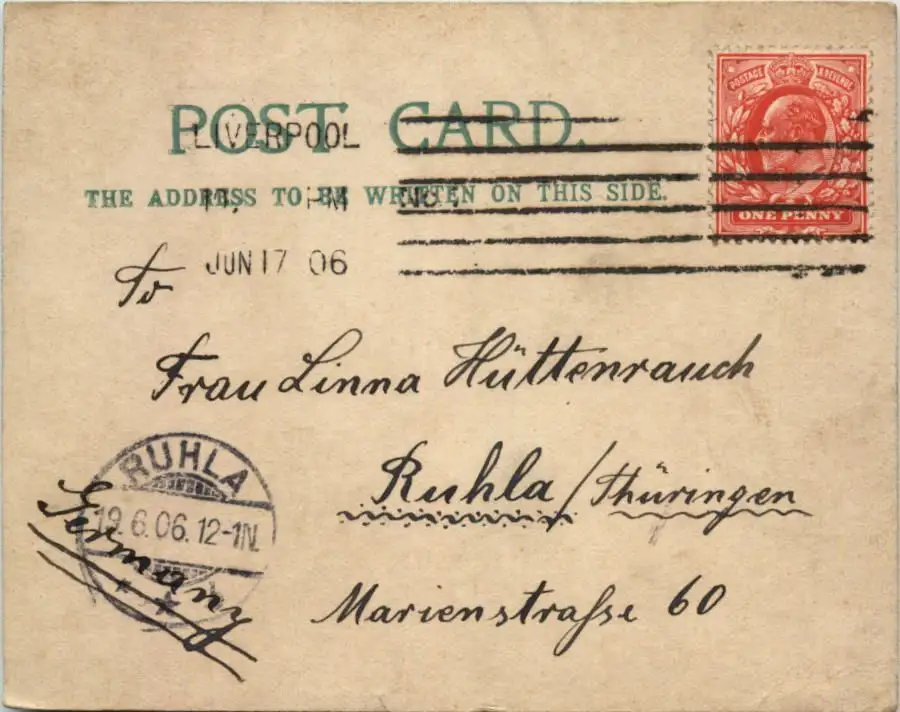 POSTAGE & REVENUE
POST CARD.
LIVERPOOL
THE ADDRESS TO BE WRITTEN ON THIS SIDE.
PM
ONE PENNY
JUN 17 06
To
Frau Linna Hüttenrauch
RUHLA
Ruhla / Thüringen
19.6.06.12-1N.
Germany
Marienstraſse 60